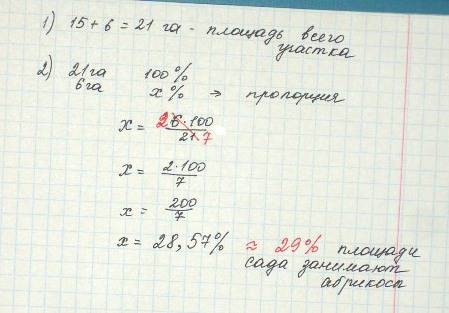 1) 15 + 6 = 21 га - площадь всего
участка
2) 21 га 100%
6 га x % => пропорция
x = 2 6 · 100 / 21 7
x = 2 · 100 / 7
x = 200 / 7
x = 28,57% ≈ 29% площади
сада занимают
абрикосы